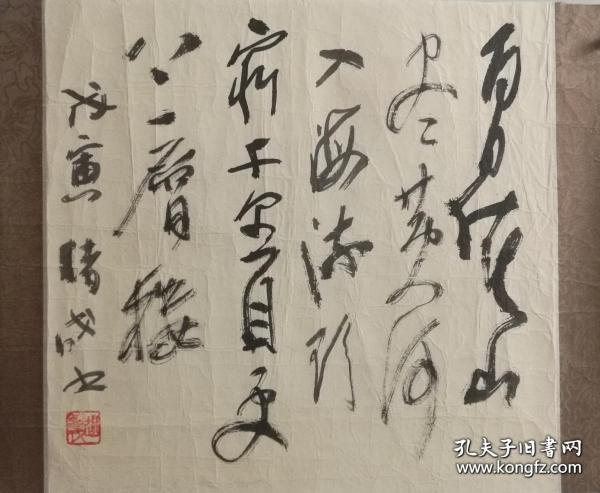 白日依山
尽黄河
入海流欲
窮千里目更
上一層樓
戊寅 成书
孔夫子旧书网
www.kongfz.com